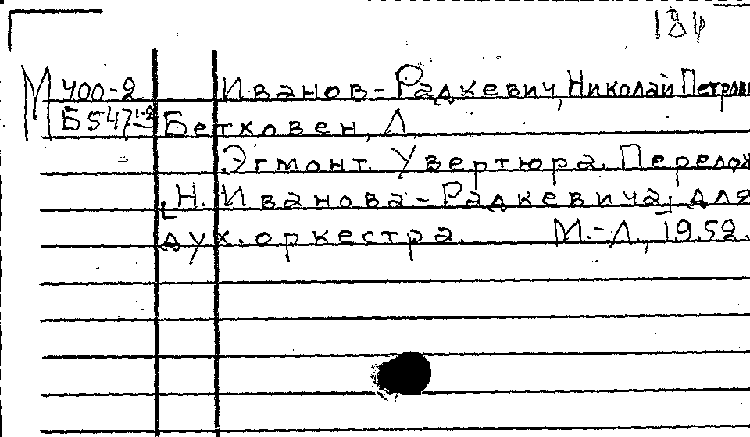 184
М 400-2 Иванов-Радкевич, Николай Петрови
Б547 1-2 Бетховен, Л.
Эгмонт. Увертюра. Перелож
[Н. Иванова-Радкевича] для
дух. оркестра. М.-Л., 1952.